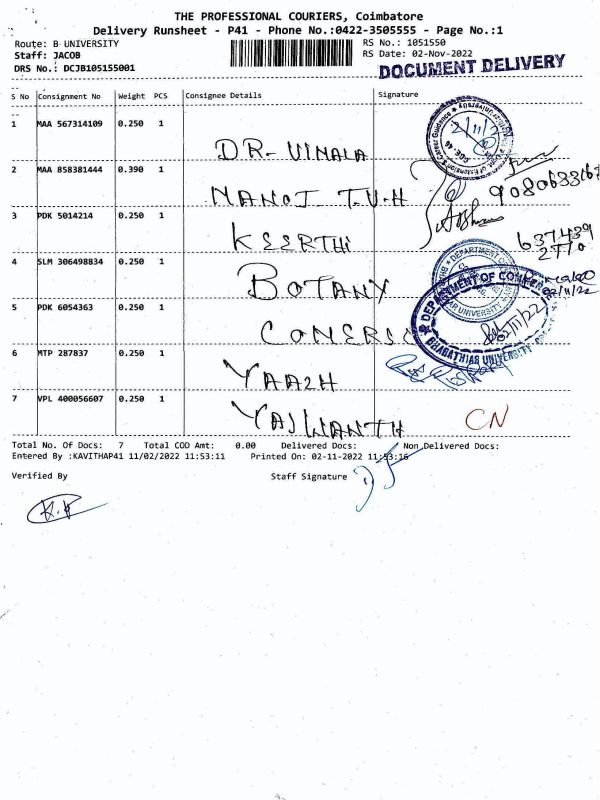 THE PROFESSIONAL COURIERS, Coimbatore
Delivery Runsheet - P41 - Phone No.:0422-3505555 - Page No.:1
Route: B UNIVERSITY RS No.: 1051550
Staff: JACOB RS Date: 02-Nov-2022
DRS No.: DCJB105155001 DOCUMENT DELIVERY
S No Consignment No Weight PCS Consignee Details Signature
1 MAA 567314109 0.250 1 DR-VIMALA 2/11/2
2 MAA 858381444 0.390 1 MANOJ T.V.H
3 PDK 5014214 0.250 1 KEERTHI 637439
2770
4 SLM 306498834 0.250 1 BOTANY
5 PDK 6054363 0.250 1 COMERSC
DEPARTMENT OF COMMERCE
BHARATHIAR UNIVERSITY
02/11/22
6 MTP 287837 0.250 1 YAAZH
7 VPL 400056607 0.250 1 YASWANTH CN
Total No. Of Docs: 7 Total COD Amt: 0.00 Delivered Docs: Non Delivered Docs:
Entered By :KAVITHAP41 11/02/2022 11:53:11 Printed On: 02-11-2022 11:53:16
Verified By Staff Signature